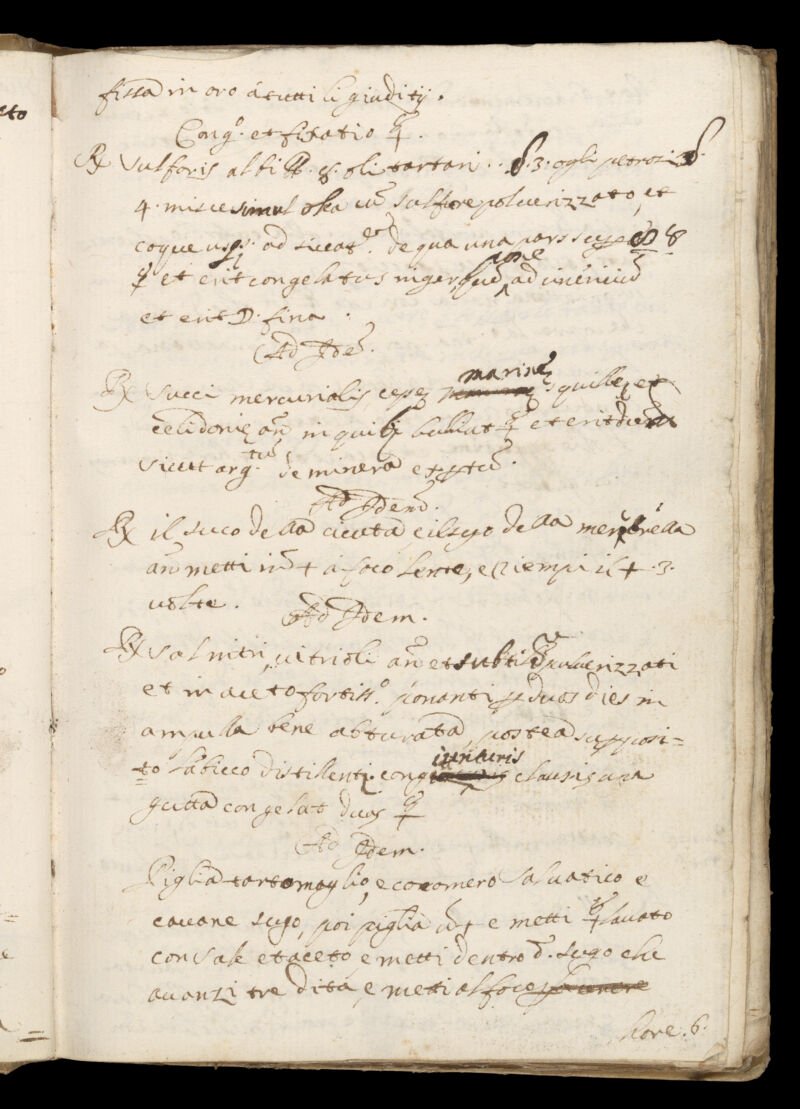 fissa in oro á tutti li giuditij.
Cong.o et fixatio ☿.
℞ sulforis albi ℔. 8. oli tartari .. 3. ogli petrosi
4. misce simul olea cũ sulfore polverizzato, et
coque usq. ad siccat.em de qua una pars super 8
☿ et erit congelatus niger, pone ad cineriuũ
et erit D. fina.
Ad Idẽ.
℞ succi mercurialis cepę marinę squillę et
celidonię añ in quib; bulliat ☿ et erit
sicut arg.tum de minera
Ad Idem.
℞ il suco della cicuta e il sugo della
añ metti iñ + á foco lente, e riempi il + .3.
volte. Ad Idem.
℞ salnitri, vitrioli añ et subtil.r pulverizzati
et in aceto fortiss.o ponanti p duos dies in
ampulla bene obturata, postea supposi=
=to labicco distillenti cong iunturis clausis una
gutta congelat duos ☿
Ad Idem.
Piglia tartomaglio, e cocomero salvatico e
cavane sugo, poi piglia ũ + e metti ☿ lavato
con sale et aceto e metti dentro d. sugo che
avanzi tre dita, e metti al foco
hore .6.